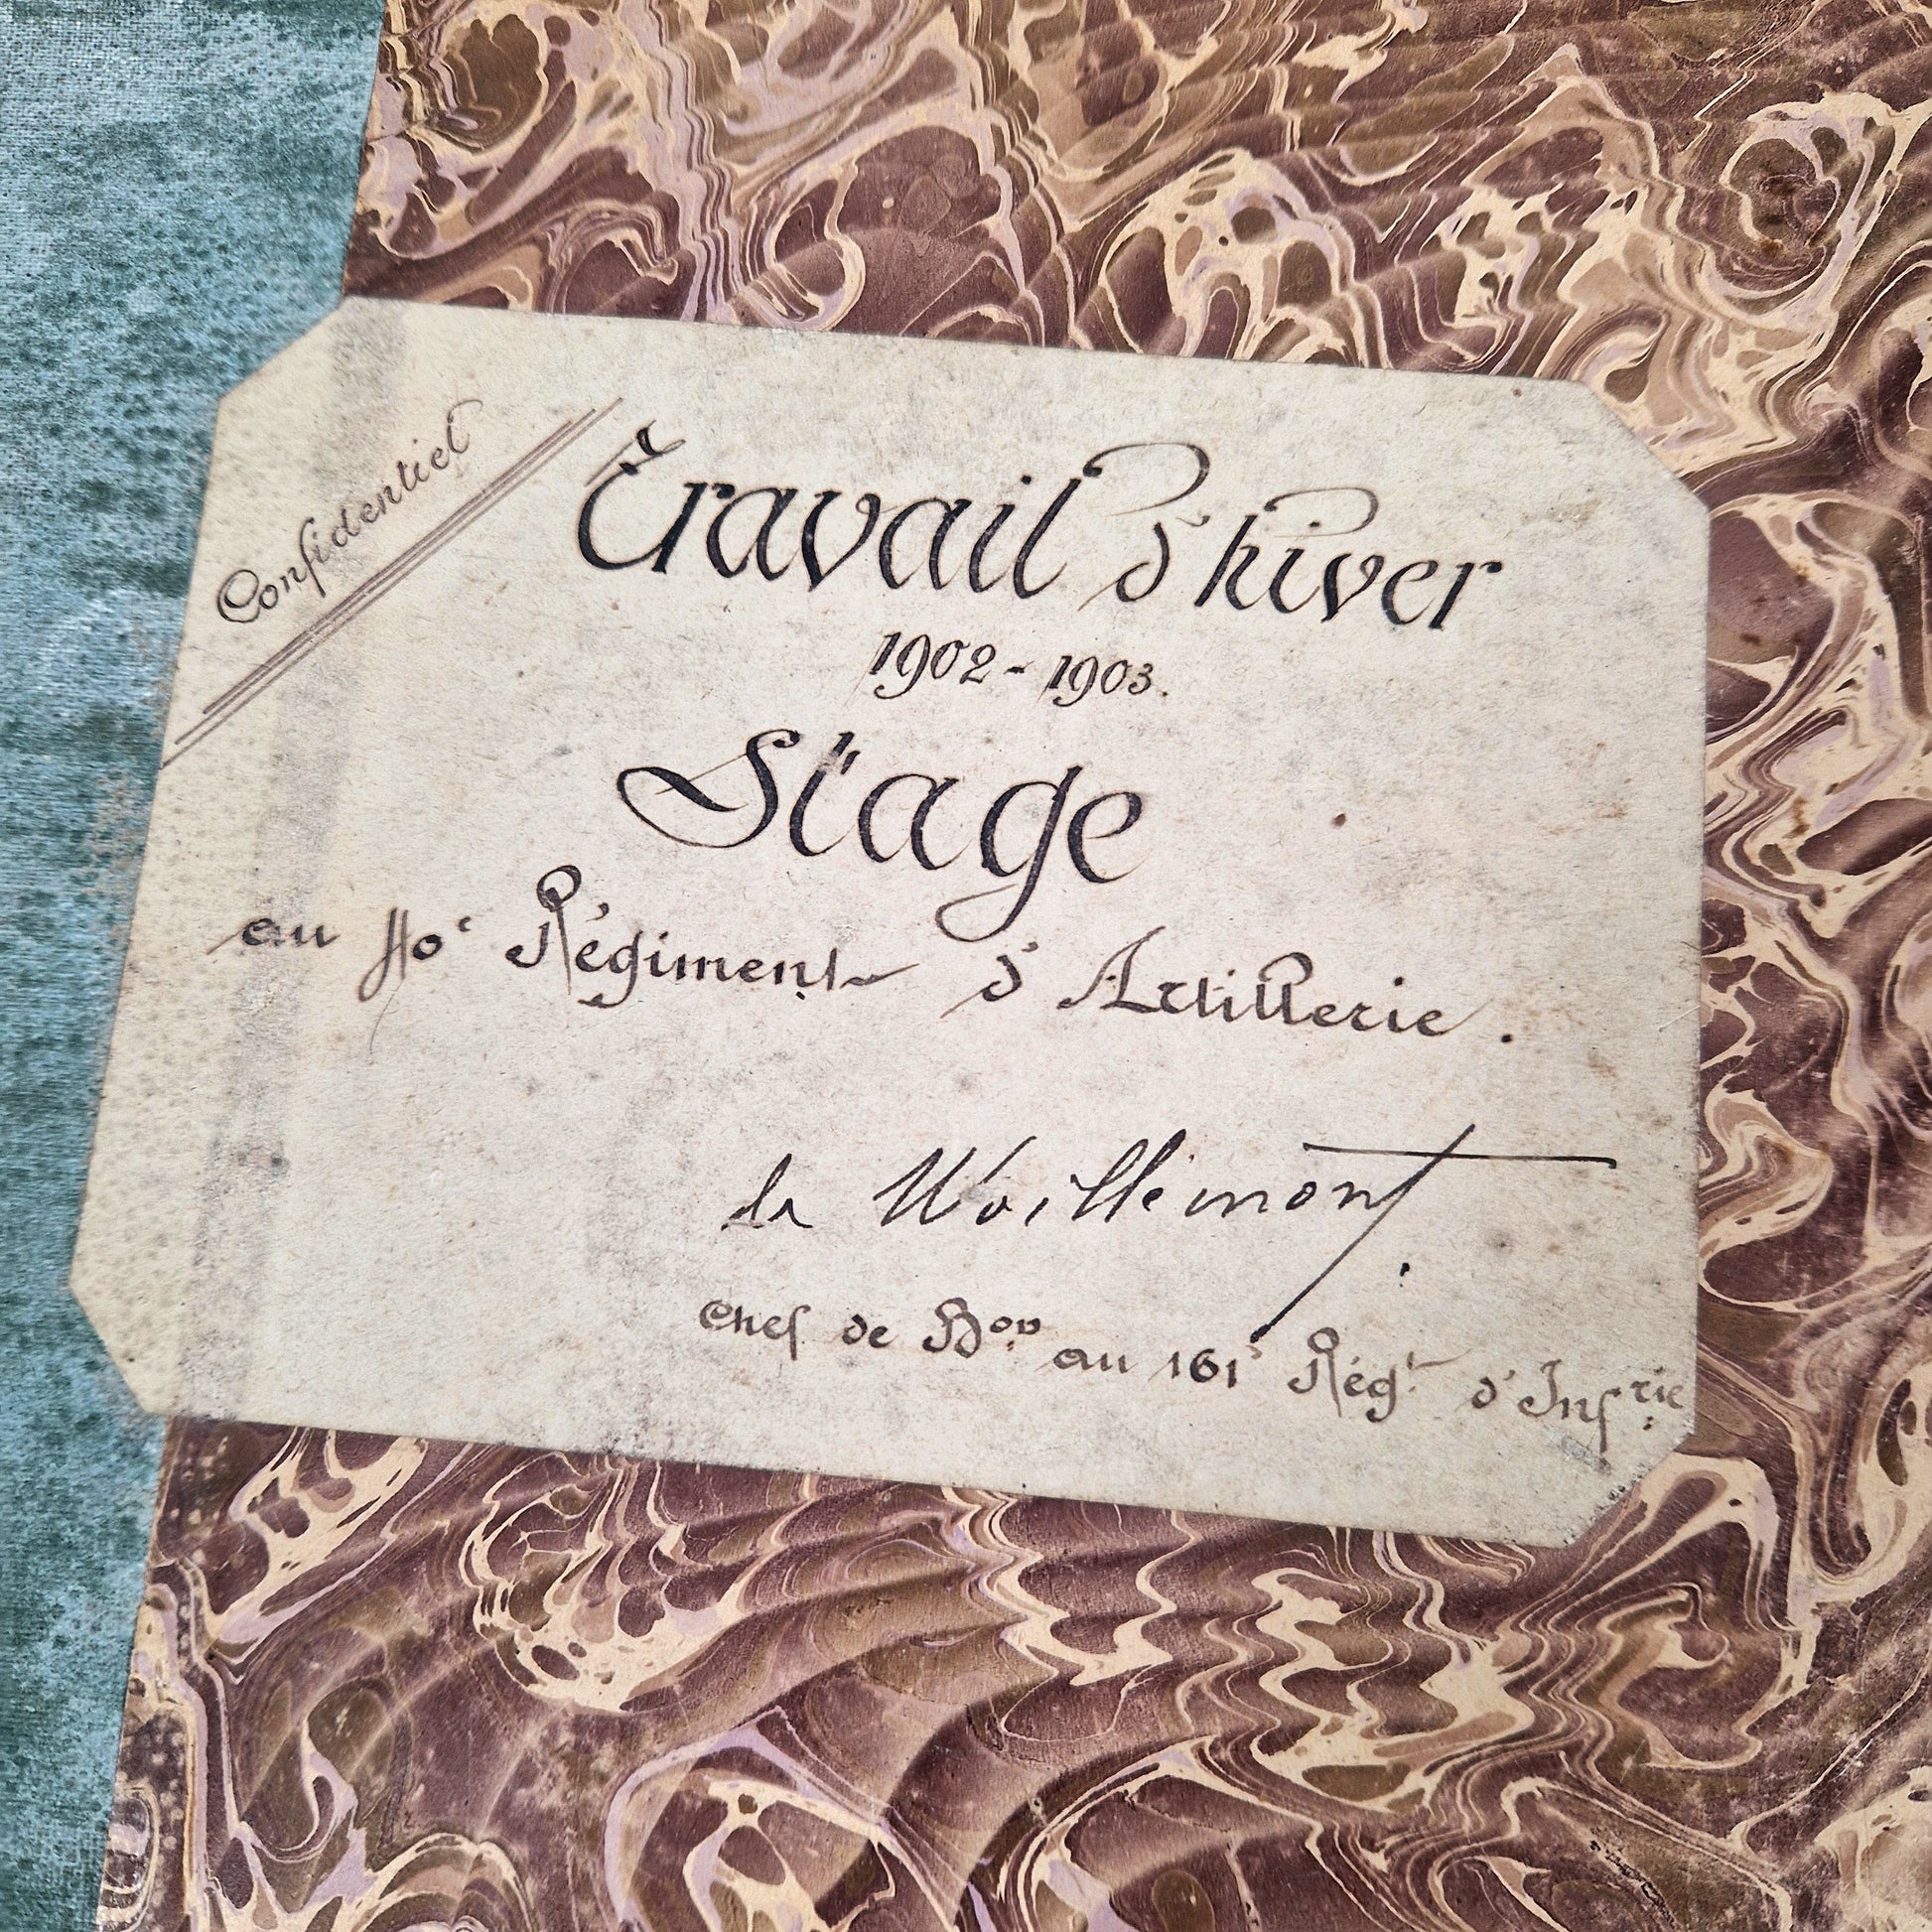 Confidentiel
Travail d'hiver
1902-1903.
Stage
au 40e Régiment d'Artillerie.
de Woillemont.
Chef de Bon au 161e Régt d'Infrie